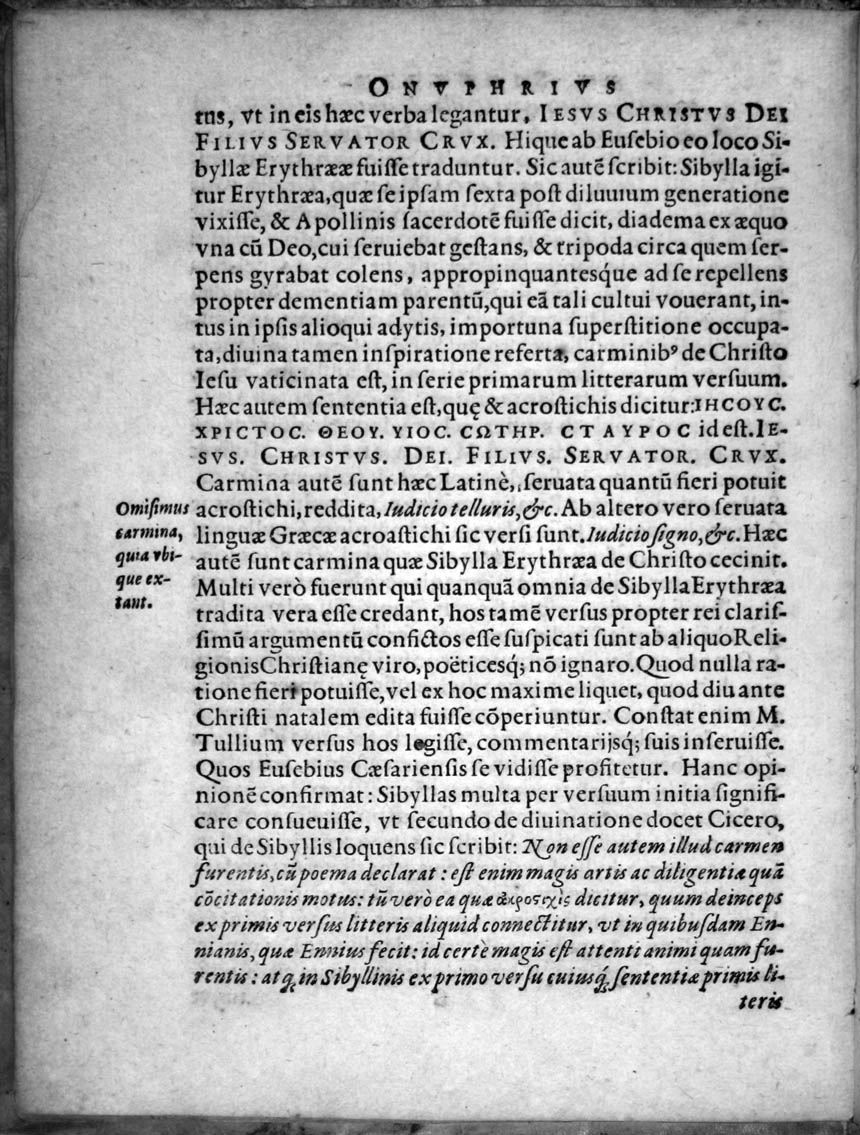 ONVPHRIVS
tus, vt in eis hæc verba legantur, IESVS CHRISTVS DEI
FILIVS SERVATOR CRVX. Hique ab Euſebio eo loco Si-
byllæ Erythrææ fuiſſe traduntur. Sic autē ſcribit: Sibylla igi-
tur Erythræa, quæ ſe ipſam ſexta poſt diluuium generatione
vixiſſe, & Apollinis ſacerdotē fuiſſe dicit, diadema ex æquo
vna cū Deo, cui ſeruiebat geſtans, & tripoda circa quem ſer-
pens gyrabat colens, appropinquantesq́ue ad ſe repellens
propter dementiam parentū, qui eā tali cultui vouerant, in-
tus in ipſis alioqui adytis, importuna ſuperſtitione occupa-
ta, diuina tamen inſpiratione referta, carminibꝰ de Chriſto
Ieſu vaticinata eſt, in ſerie primarum litterarum verſuum.
Hæc autem ſententia eſt, quę & acroſtichis dicitur: ΙΗϹΟΥϹ.
ΧΡΙϹΤΟϹ. ΘΕΟΥ. ΥΙΟϹ. ϹΩΤΗΡ. ϹΤΑΥΡΟϹ id eſt. IE-
SVS. CHRISTVS. DEI. FILIVS. SERVATOR. CRVX.
Carmina autē ſunt hæc Latinè, ſeruata quantū fieri potuit
acroſtichi, reddita, Iudicio telluris, &c. Ab altero vero ſeruata
linguæ Græcæ acroaſtichi ſic verſi ſunt. Iudicio ſigno, &c. Hæc
autē ſunt carmina quæ Sibylla Erythræa de Chriſto cecinit.
Multi verò fuerunt qui quanquā omnia de Sibylla Erythræa
tradita vera eſſe credant, hos tamē verſus propter rei clariſ-
ſimū argumentū confictos eſſe ſuſpicati ſunt ab aliquo Reli-
gionis Chriſtianę viro, poëticesq́; nō ignaro. Quod nulla ra-
tione fieri potuiſſe, vel ex hoc maxime liquet, quod diu ante
Chriſti natalem edita fuiſſe cōperiuntur. Conſtat enim M.
Tullium verſus hos legiſſe, commentarijsq́; ſuis inſeruiſſe.
Quos Euſebius Cæſarienſis ſe vidiſſe profitetur. Hanc opi-
nionē confirmat: Sibyllas multa per verſuum initia ſignifi-
care conſueuiſſe, vt ſecundo de diuinatione docet Cicero,
qui de Sibyllis loquens ſic ſcribit: Non eſſe autem illud carmen
furentis, cū poema declarat: eſt enim magis artis ac diligentiæ quā
cōcitationis motus: tū verò ea quæ ἀκροστιχὶς dicitur, quum deinceps
ex primis verſus litteris aliquid connectitur, vt in quibuſdam En-
nianis, quæ Ennius fecit: id certè magis eſt attenti animi quam fu-
rentis: atq; in Sibyllinis ex primo verſu cuiusq́; ſententiæ primis li-
teris
Omiſimus
carmina,
quia vbi-
que ex-
tant.